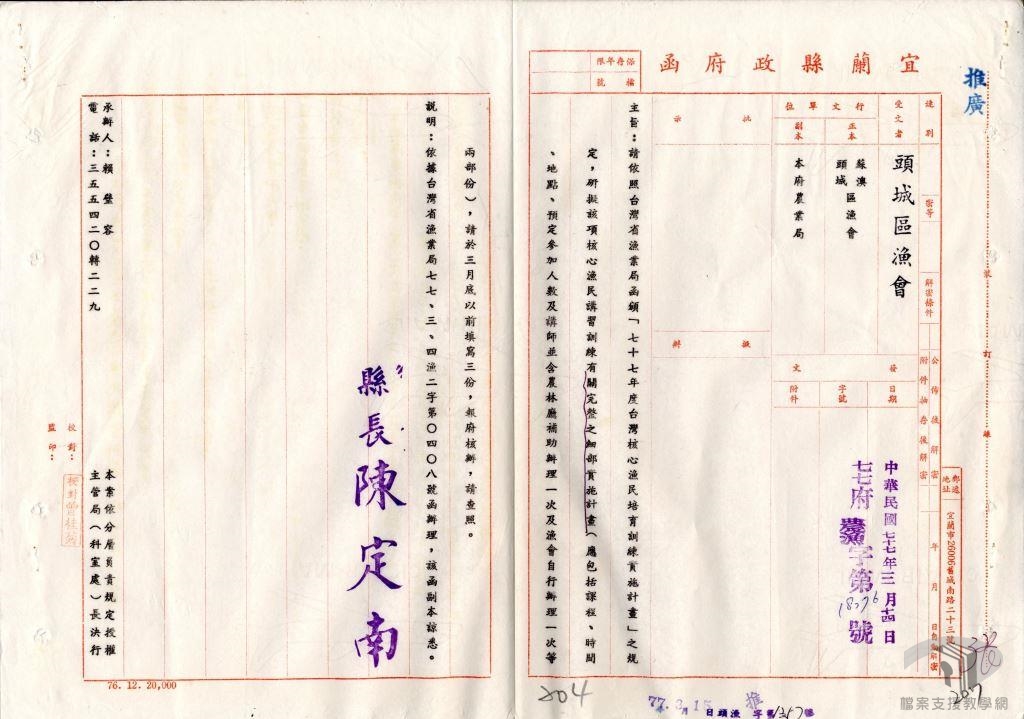 推廣
宜蘭縣政府函
保存年限
檔號
速別
密等
解密條件
公佈後解密
附件抽存後解密
年月日自動解密
受文者
頭城區漁會
行文單位
正本
蘇澳
頭城
區漁會
副本
本府農業局
發文
日期
中華民國七十七年三月十四日
字號
七七府農漁字第18776號
附件
郵遞
地址
宜蘭市26006舊城南路二十三號
批示
擬辦
主旨：請依照台灣省漁業局函頒「七十七年度台灣核心漁民培育訓練實施計畫」之規
定，研擬該項核心漁民講習訓練有關完整之細部實施計畫（應包括課程、時間
、地點、預定參加人數及講師並含農林廳補助辦理一次及漁會自行辦理一次等
兩部份），請於三月底以前填寫三份，報府核辦，請查照。
說明：依據台灣省漁業局七七、三、四漁二字第０四０八號函辦理，該函副本諒悉。
縣長陳定南
承辦人：賴瑩容
電話：三五五四二０轉二二九
本案依分層負責規定授權
主管局（科室處）長決行
校對：
監印：
裝
訂
線
76. 12. 20,000
204
77. 3月15日頭漁推字第1317號
207
檔案支援教學網